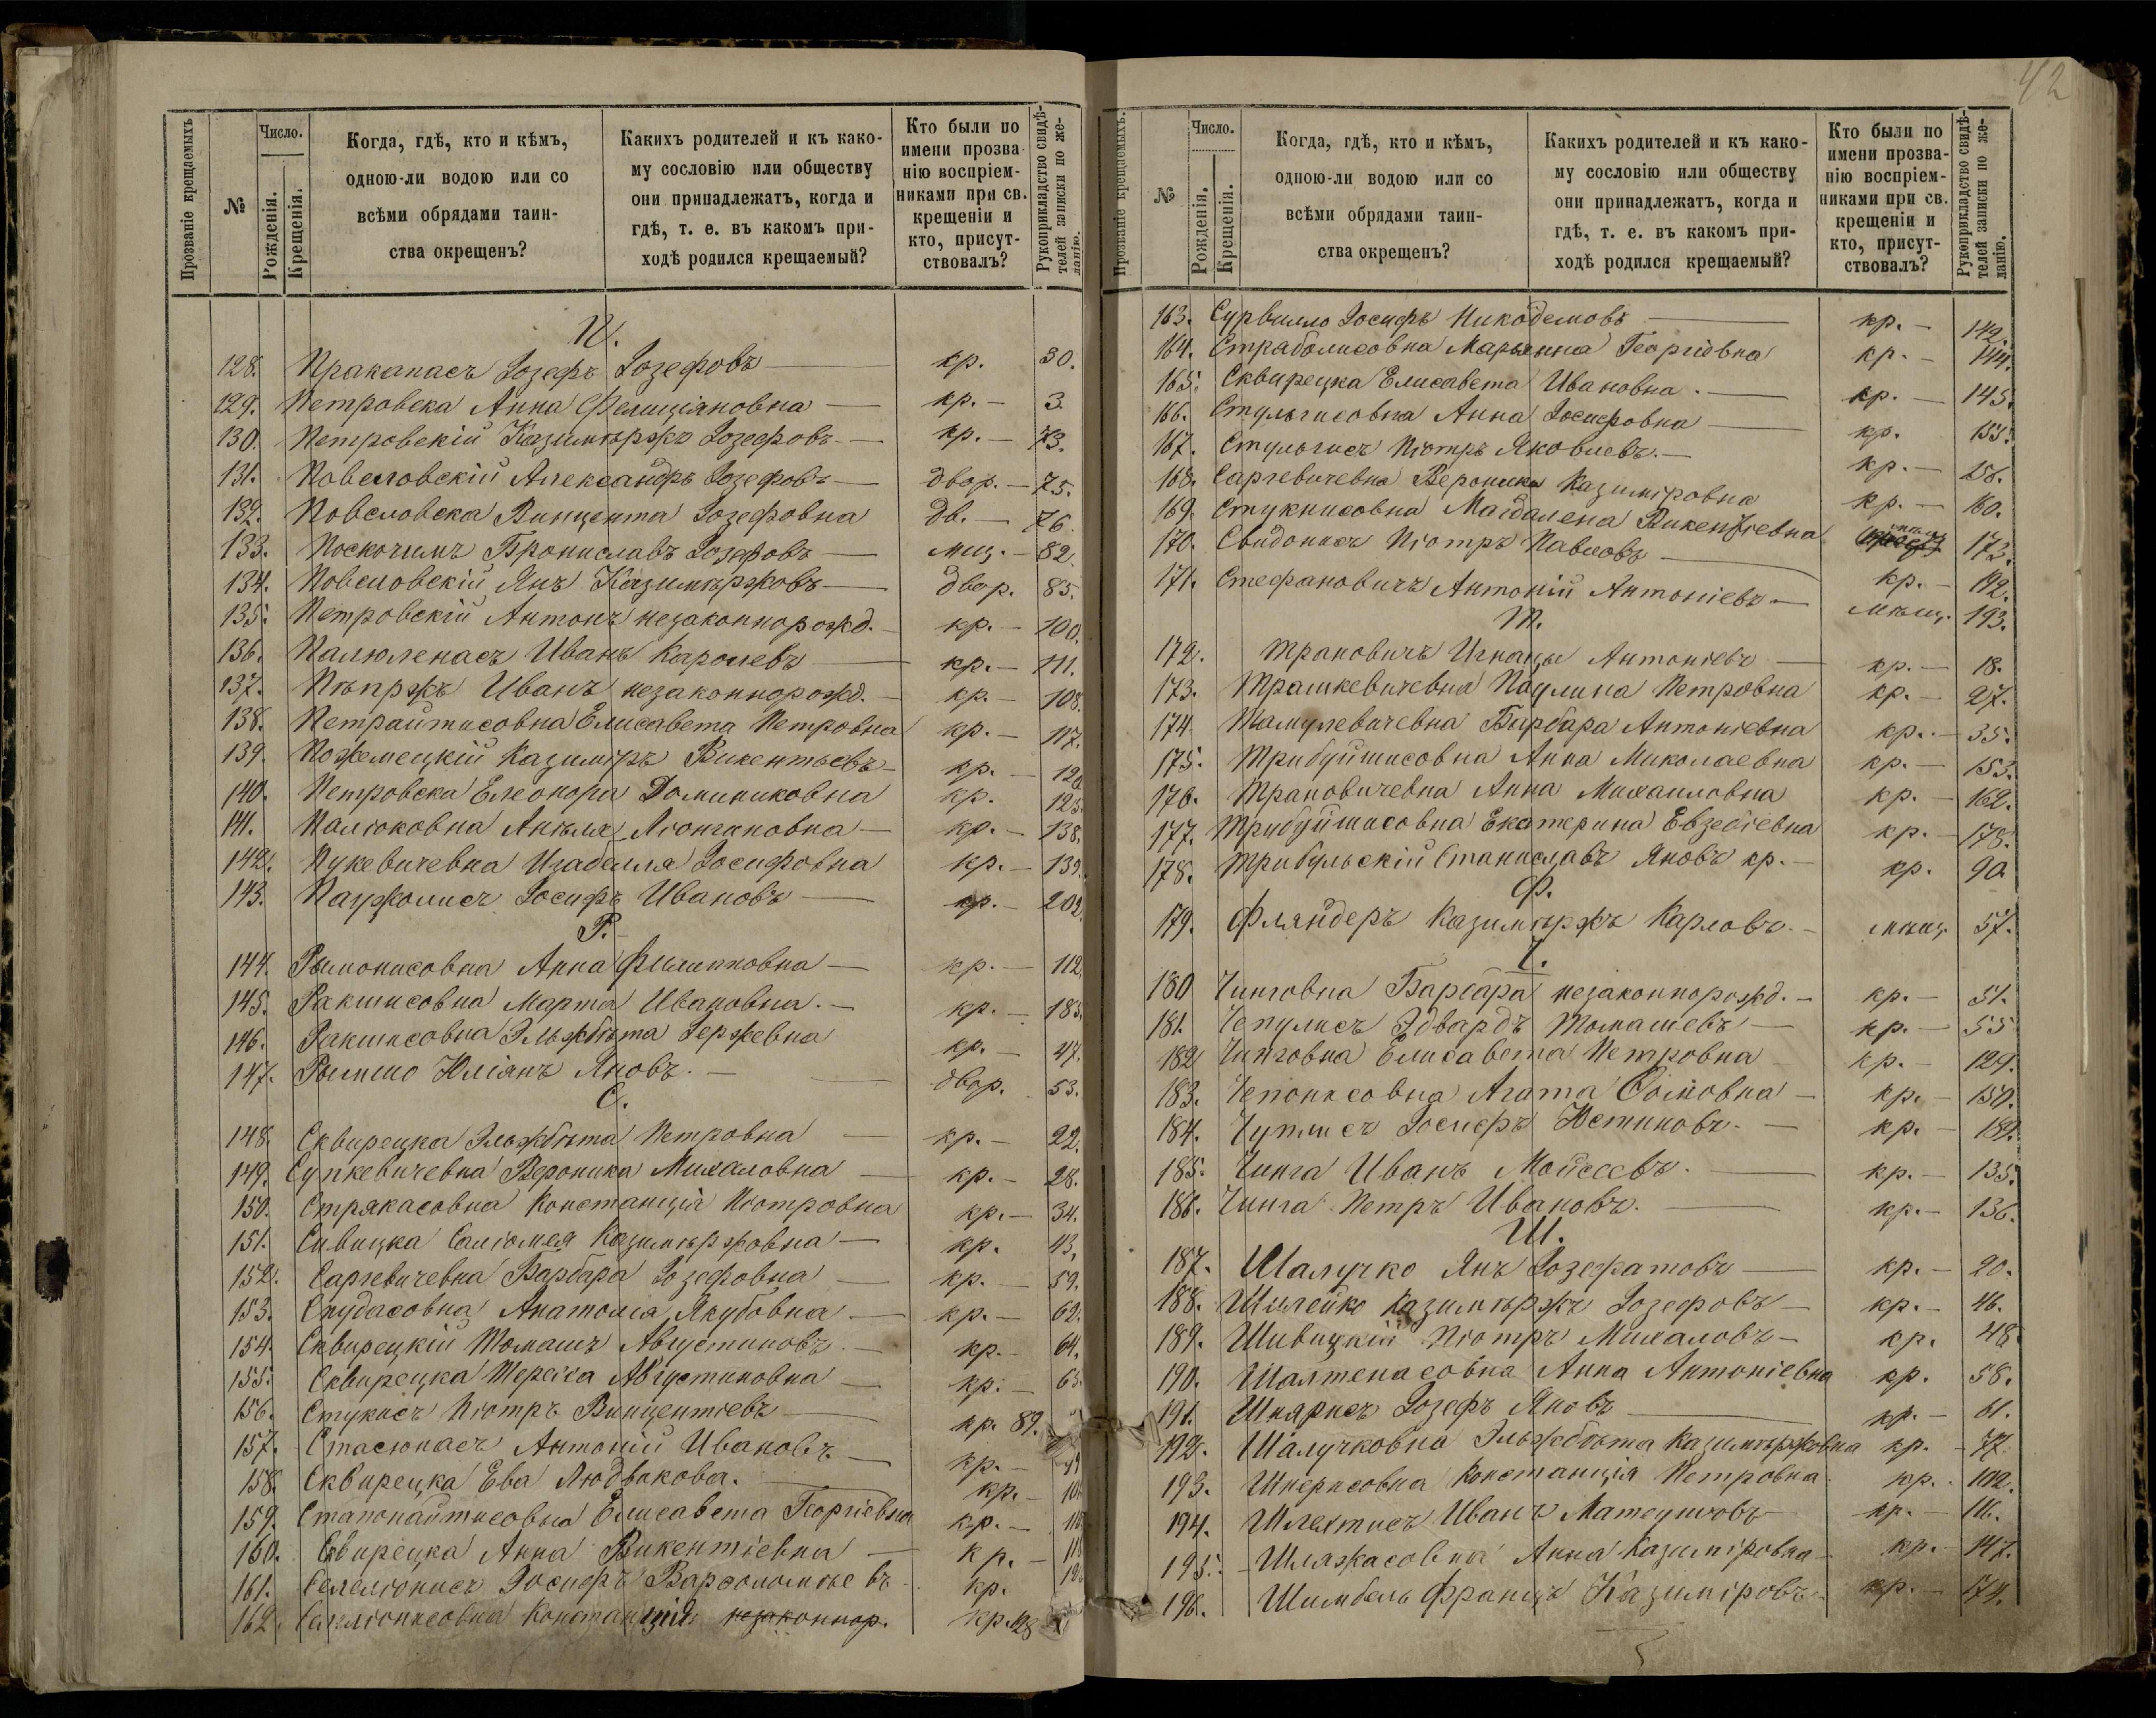 42
Прозваніе крещаемыхъ
№
Число.
Рожденія.
Крещенія.
Когда, гдѣ, кто и кѣмъ,
одною-ли водою или со
всѣми обрядами таин-
ства окрещенъ?
Какихъ родителей и къ како-
му сословію или обществу
они принадлежатъ, когда и
гдѣ, т. е. въ какомъ при-
ходѣ родился крещаемый?
Кто были по
имени прозва
нію воспріем-
никами при св.
крещеніи и
кто, присут-
ствовалъ?
Рукоприкладство свидѣ-
телей записки по же-
ланію.
П.
128. Пракапасъ Іозефъ Іозефовъ — кр. 30.
129. Петровска Анна Фелиціяновна — кр. — 3.
130. Петровскій Казимѣржъ Іозефовъ — кр. — 73.
131. Повсловскій Александръ Іозефовъ — двор. — 75.
132. Повсловска Винцента Іозефовна дв. — 76.
133. Поскочимъ Брониславъ Іозефовъ — мщ. — 82.
134. Повсловскій Янъ Казимѣржовъ — двор. 85.
135. Петровскій Антонъ незаконнорожд. — кр. — 100.
136. Палюленасъ Иванъ Каролевъ — кр. — 111.
137. Пѣпржъ Иванъ незаконнорожд. — кр. — 108.
138. Петрайтисовна Елисавета Петровна кр. — 117.
139. Пожемецкій Казиміръ Викентьевъ — кр. — 120.
140. Петровска Елеонора Доминиковна кр. 125.
141. Палюковна Анѣля Лонгиновна — кр. — 138.
142. Пукевичевна Изабелля Іосифовна кр. — 139.
143. Паужолисъ Іосифъ Ивановъ — кр. — 202.
Р.
144. Рымонисовна Анна Филипповна — кр. — 112.
145. Ракшисовна Марта Ивановна. — кр. — 185.
146. Ракшисовна Эльжбѣта Ержевна кр. — 47.
147. Рымшо Юліянъ Яновъ. — двор. 53.
С.
148. Сквирецка Эльжбѣта Петровна — кр. — 22.
149. Супкевичевна Вероника Михаловна — кр. — 28.
150. Стрякасовна Констанція Піотровна кр. — 34.
151. Сивицка Салюмея Казимѣржовна — кр. 43.
152. Саргевичевна Барбара Іозефовна — кр. — 59.
153. Скудасовна Анатолія Якубовна — кр. — 62.
154. Сквирецкій Томашъ Августиновъ. — кр. — 64.
155. Сквирецка Тереса Августиновна — кр. — 65.
156. Стукисъ Піотръ Винцентіевъ — кр. 89.
157. Стасюнасъ Антоній Ивановъ — кр. —
158. Сквирецка Ева Людвикова. — кр. —
159. Стапонайтисовна Елисавета Георгіевна кр. —
160. Сквирецка Анна Викентіевна — кр. —
161. Селелюнисъ Іосифъ Варѳоломѣевъ кр.
162. Селелюнисовна Констанція незаконнор. кр. 128
Прозваніе крещаемыхъ.
№
Число.
Рожденія.
Крещенія.
Когда, гдѣ, кто и кѣмъ,
одною-ли водою или со
всѣми обрядами таин-
ства окрещенъ?
Какихъ родителей и къ како-
му сословію или обществу
они принадлежатъ, когда и
гдѣ, т. е. въ какомъ при-
ходѣ родился крещаемый?
Кто были по
имени прозва-
нію воспріем-
никами при св.
крещеніи и
кто, присут-
ствовалъ?
Рукоприкладство свидѣ-
телей записки по же-
ланію.
163. Сурвилло Іосифъ Никодемовъ — кр. — 142.
164. Страболисовна Марьянна Георгіевна кр. — 144.
165. Сквирецка Елисавета Ивановна. — кр. — 145.
166. Стульгисовна Анна Іосифовна — кр. 155.
167. Стульгисъ Піотръ Яковлевъ. — кр. — 256.
168. Саргевичевна Вероника Казиміровна кр. — 160.
169. Стукнисовна Магдалена Викентіевна 173.
170. Свидонисъ Піотръ Павловъ — кр. — 192.
171. Стефановичъ Антоній Антоніевъ — мѣщ. 193.
Т.
172. Трановичъ Игнацы Антоніевъ — кр. — 18.
173. Трашкевичевна Паулина Петровна кр. — 27.
174. Тамулевичевна Барбара Антоніевна кр. — 35.
175. Трибуйшисовна Анна Миколаевна кр. — 153.
176. Трановичевна Анна Михаиловна кр. — 162.
177. Трибуйшисовна Екатерина Евзебіевна кр. — 178.
178. Трибульскій Станиславъ Яновъ кр. — кр. 90.
Ф.
179. Фляндеръ Казимѣржъ Карловъ. — мѣщ. 57.
Ч.
180 Чинговна Барбара незаконнорожд. — кр. — 51.
181. Чепулисъ Эдвардъ Томашевъ — кр. — 55
182 Чинговна Елисавета Петровна кр. — 129.
183. Чепонисовна Агата Ѳомовна — кр. — 150.
184. Чуплисъ Іосифъ Юстиновъ. — кр. — 189.
185. Чинга Иванъ Мойсеевъ. — кр. — 135.
186. Чинга Петръ Ивановъ. — кр. — 136.
Ш.
187. Шалучко Янъ Іозефатовъ — кр. — 20.
188. Шилейко Казимѣржъ Іозефовъ — кр. — 46.
189. Шивицкій Піотръ Михаловъ — кр. 48.
190. Шалтенасовна Анна Антоніевна кр. 58.
191. Шнярисъ Іозефъ Яновъ — кр. — 61.
192. Шалучковна Эльжбѣта Казимѣржовна кр. — 77.
193. Шнерисовна Констанція Петровна. кр. 102.
194. Шлехтисъ Иванъ Матеушовъ кр. — 116.
195. Шляжасовна Анна Казиміровна — кр. — 147.
196. Шимбель Францъ Казиміровъ — кр. — 174.